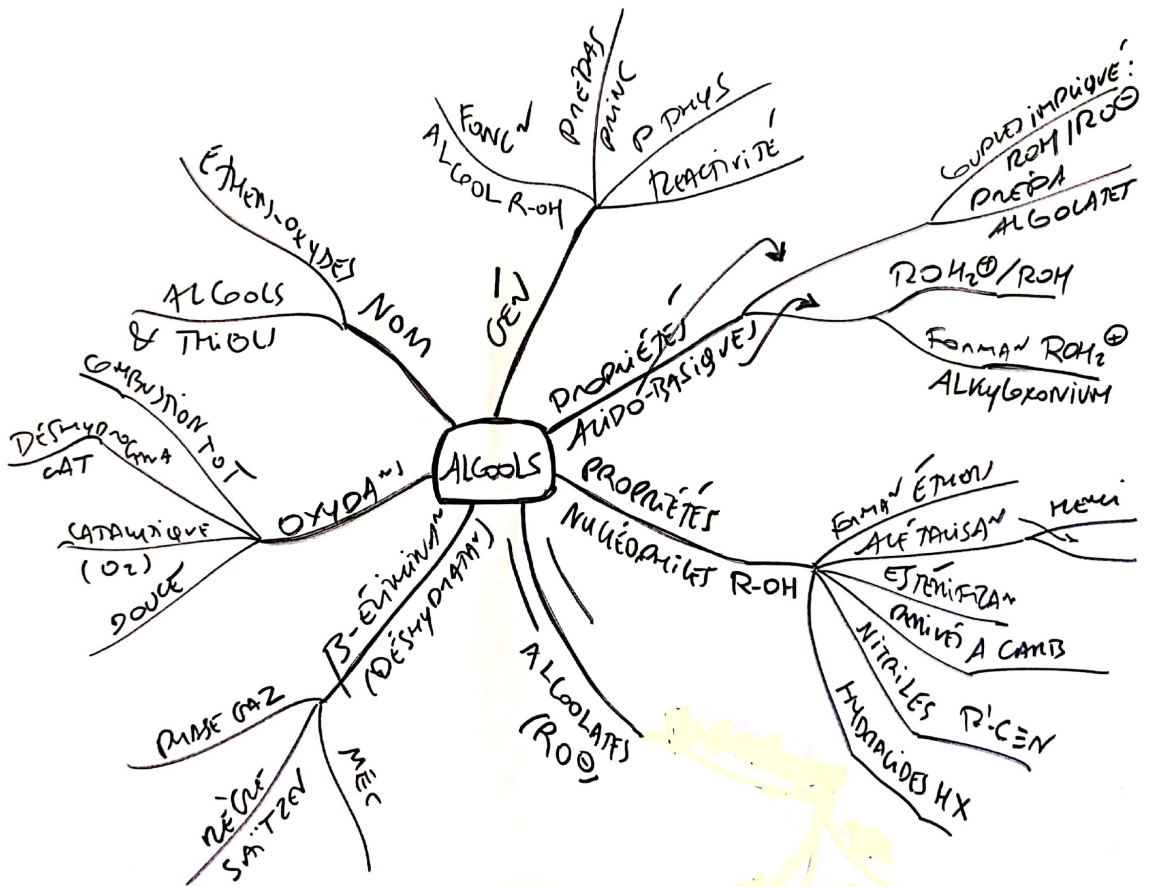 ALCOOLS
GÉN
FONC~
ALCOOL R-OH
PRÉPAS
PRINC
P PHYS
RÉACTIVITÉ
PROPRIÉTÉS
ACIDO-BASIQUES
COUPLES IMPLIQUÉ :
ROH/RO⊖
PRÉPA
ALCOLATET
ROH₂⊕/ROH
FORMA~ ROH₂⊕
ALKYLOXONIUM
PROPRIÉTÉS
NUCÉOPHILES R-OH
FORMA~ ÉTHER
ACÉTALISA~
ESTÉRIFICA~
DÉRIVÉS A CARB
NITRILES R'-C≡N
HYDRACIDES HX
ALCOOLATES
(RO⊖)
β-ÉLIMINA~
(DÉSHYDRATA~)
MÉC
RÈGLE
SAÏTZEV
PHASE GAZ
OXYDA~S
COMBUSTION TOT
DÉSHYDROGÉNA
CAT
CATALYTIQUE
(O2)
DOUCE
NOM
ÉTHERS-OXYDES
ALCOOLS
& THIOLS